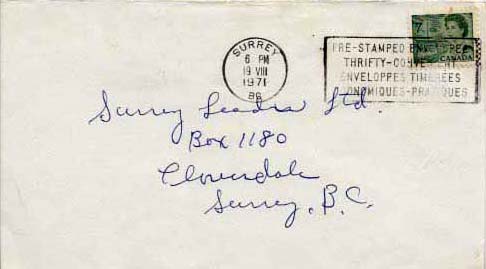 SURREY
6 PM
19 VIII
1971
BC
7
CANADA
PRE-STAMPED ENVELOPES
THRIFTY-CONVENIENT
ENVELOPPES TIMBRÉES
ÉCONOMIQUES-PRATIQUES
Surrey Leader Ltd.
Box 1180
Cloverdale
Surrey, B.C.